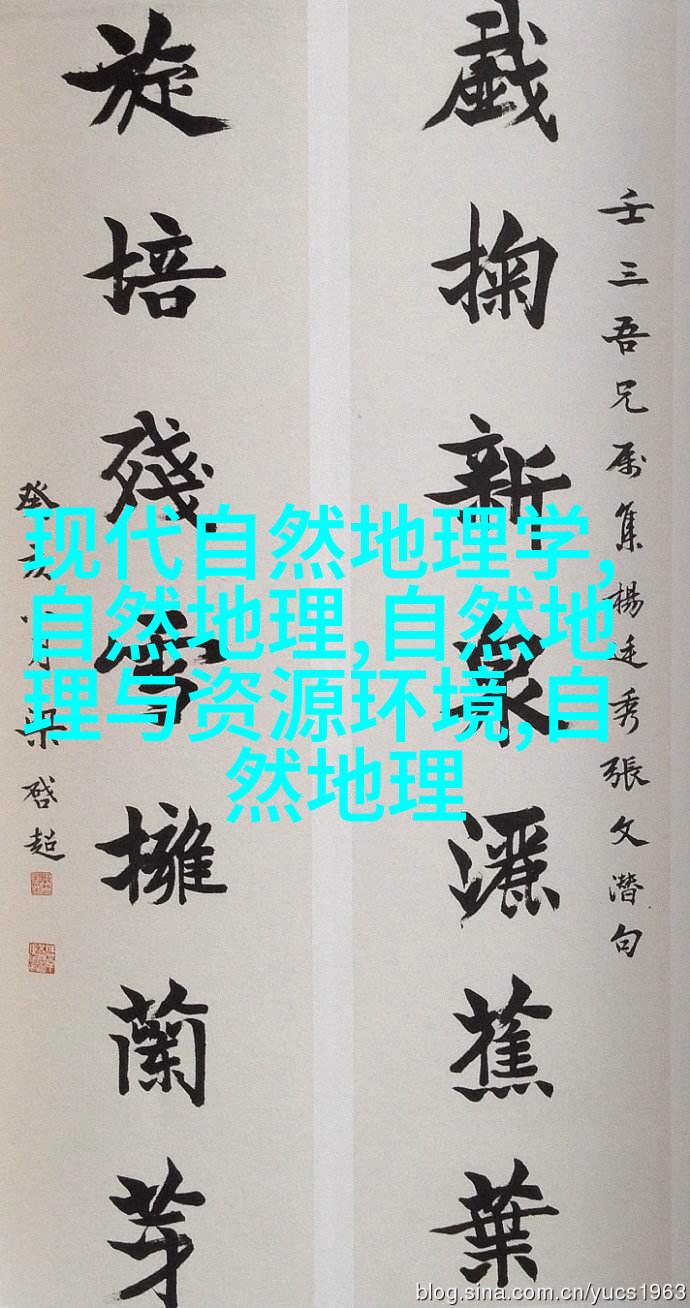 壬三吾兄属集楊廷秀張文潜句
戱掬新泉灑蕉葉
旋培殘雪擁蘭芽
癸亥月梁啓超
现代自然地理学,
自然地理,自然地
理与资源环境,自
然地理
blog.sina.com.cn/yucs1963